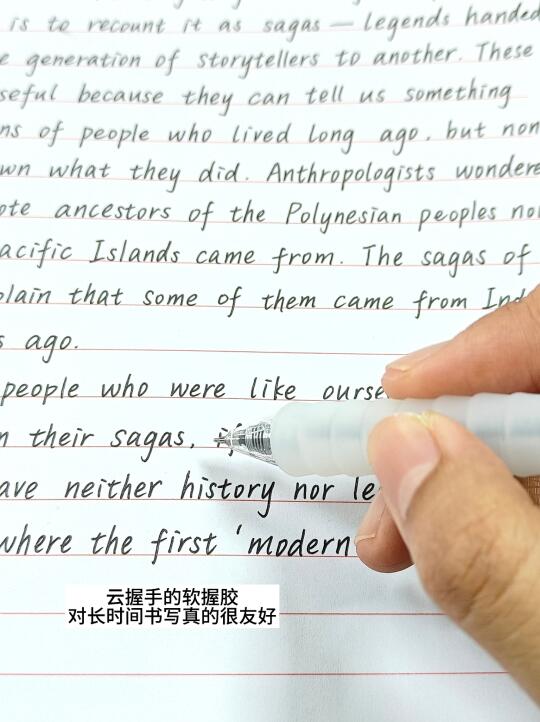 is to recount it as sagas — legends handed
e generation of storytellers to another. These
seful because they can tell us something
ns of people who lived long ago, but non
wn what they did. Anthropologists wondere
ote ancestors of the Polynesian peoples no
acific Islands came from. The sagas of
plain that some of them came from Ind
s ago.
people who were like ourse
n their sagas,
ave neither history nor le
where the first 'modern
云握手的软握胶
对长时间书写真的很友好